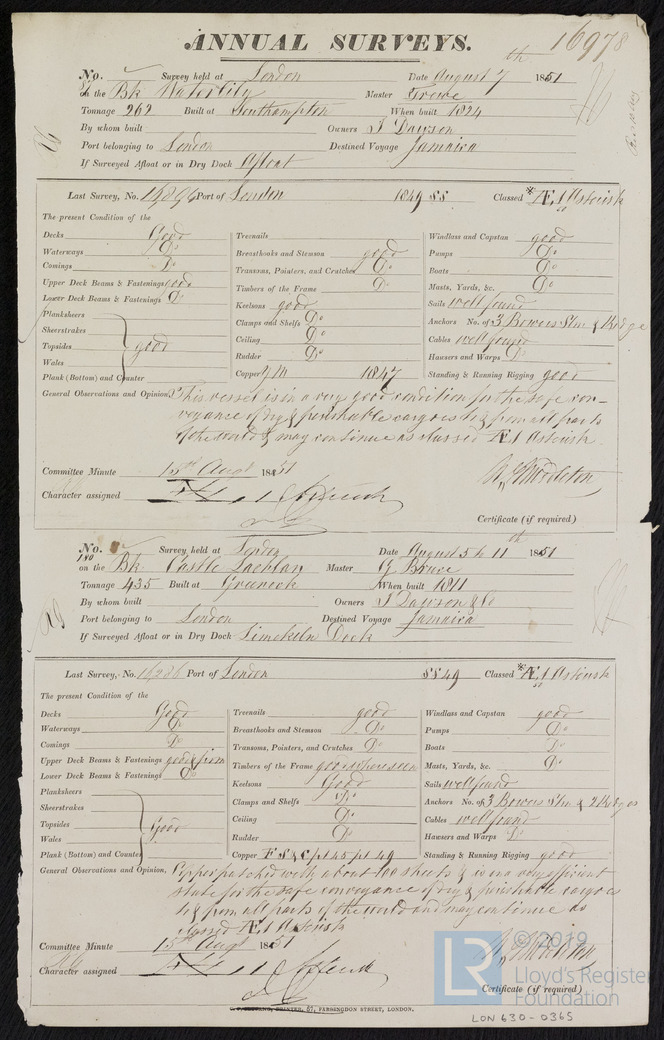 ANNUAL SURVEYS.
16978
No. Survey held at London Date August 7th 1851
on the Bk Waterlily Master Greive
Tonnage 262 Built at Southampton When built 1824
By whom built Owners J Dawson
Port belonging to London Destined Voyage Jamaica
If Surveyed Afloat or in Dry Dock Afloat
Last Survey, No. 15896 Port of London 1849 SS Classed *Æ1 Asterisk
The present Condition of the
Decks Good Treenails Windlass and Capstan good
Waterways Do Breasthooks and Stemson good Pumps Do
Comings Do Transoms, Pointers, and Crutches Do Boats Do
Upper Deck Beams & Fastenings good Timbers of the Frame Do Masts, Yards, &c. Do
Lower Deck Beams & Fastenings Do Keelsons good Sails well found
Planksheers Clamps and Shelfs Do Anchors No. of 3 Bowers Stm & Kedge
Sheerstrakes Ceiling Do Cables well found
Topsides good Rudder Do Hawsers and Warps Do
Wales Copper 1847 Standing & Running Rigging good
Plank (Bottom) and Counter
General Observations and Opinion, This vessel is in a very good condition for the safe con-
veyance of dry & perishable cargoes to & from all parts
of the world & may continue as classed Æ1 Asterisk
Committee Minute 15th Augt 1851
Character assigned
Certificate (if required)
No. Survey held at London Date August 5th 11th 1851
180
on the Bk. Castle Lachlan Master G Bruce
Tonnage 435 Built at Greenock When built 1811
By whom built Owners J Dawson & Co
Port belonging to London Destined Voyage Jamaica
If Surveyed Afloat or in Dry Dock Limekiln Dock
Last Survey, No. 16286 Port of London SS 49 Classed *Æ1 Asterisk
The present Condition of the
Decks Good Treenails good Windlass and Capstan good
Waterways Do Breasthooks and Stemson Do Pumps Do
Comings Do Transoms, Pointers, and Crutches Do Boats Do
Upper Deck Beams & Fastenings good & firm Timbers of the Frame good where seen Masts, Yards, &c. Do
Lower Deck Beams & Fastenings Do Keelsons Good Sails well found
Planksheers Clamps and Shelfs Do Anchors No. of 3 Bowers Stm & 2 Kedges
Sheerstrakes Ceiling Do Cables well found
Topsides Good Rudder Do Hawsers and Warps Do
Wales Copper F S & C pt 45 pt 49 Standing & Running Rigging good
Plank (Bottom) and Counter
General Observations and Opinion, patched with about 100 sheets & is in a very efficient
state for the safe conveyance of dry & perishable cargoes
to & from all parts of the world and may continue as
classed Æ1 Asterisk
Committee Minute 15th Augt 1851
Character assigned
Certificate (if required)
PRINTER, 87, FARRINGDON STREET, LONDON.
LON 630-0365
LR
© 2019
Lloyd's Register
Foundation